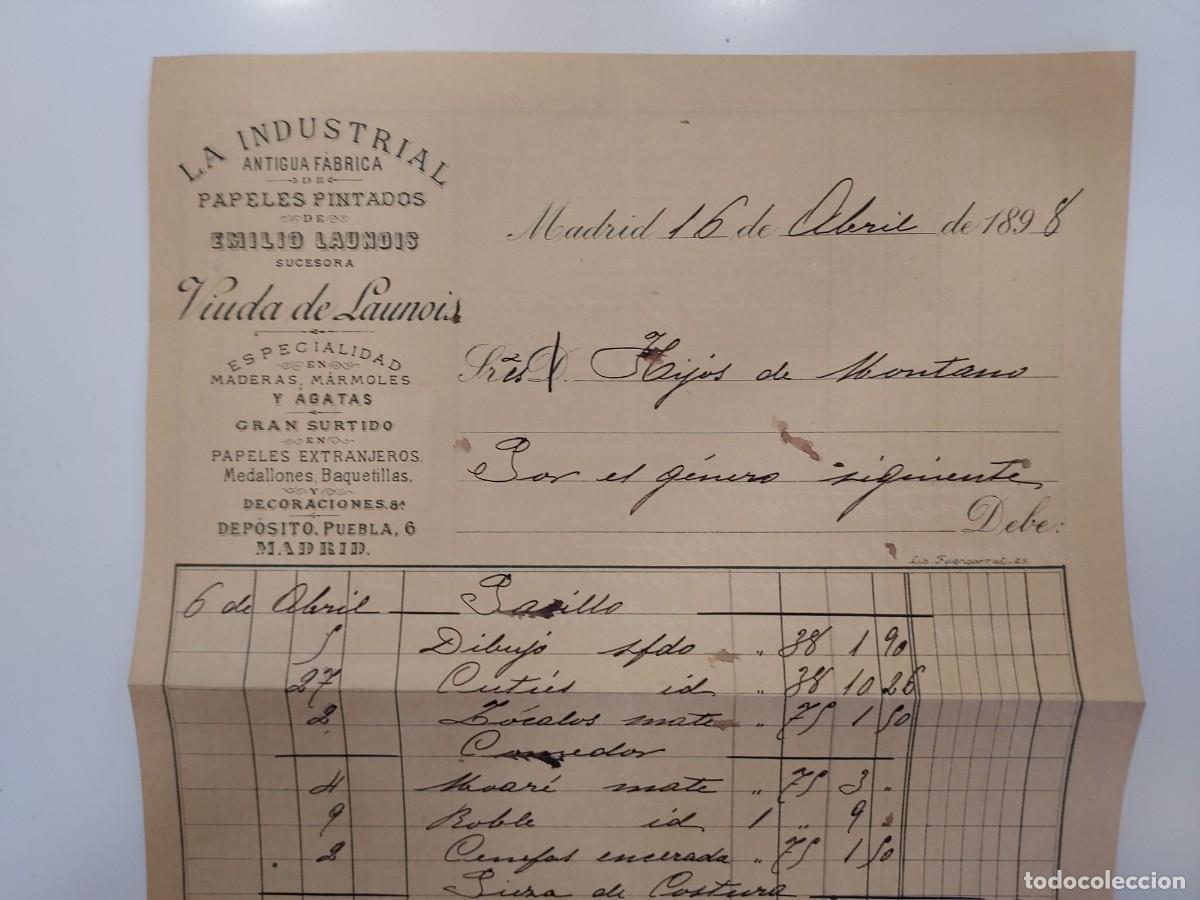 LA INDUSTRIAL
ANTIGUA FÀBRICA
DE
PAPELES PINTADOS
DE
EMILIO LAUNOIS
SUCESORA
Viuda de Launois
ESPECIALIDAD
EN
MADERAS, MÁRMOLES
Y ÁGATAS
GRAN SURTIDO
EN
PAPELES EXTRANJEROS.
Medallones, Baquetillas,
Y
DECORACIONES, &ª
DEPÓSITO, PUEBLA, 6
MADRID.
Madrid 16 de Abril de 1898
Sres D. Hijos de Montano
Por el género siguiente
Debe:
Lit. Fuencarral. 29.
6 de Abril Pasillo
5 Dibujo sfdo " 38 1 90
27 Cutiés id " 38 10 26
2 Zócalos mate " 75 1 50
Comedor
4 Moaré mate " 75 3 "
9 Roble id 1 " 9 "
2 Cenefas encerada " 75 1 50
Pieza de Costura
todocoleccion